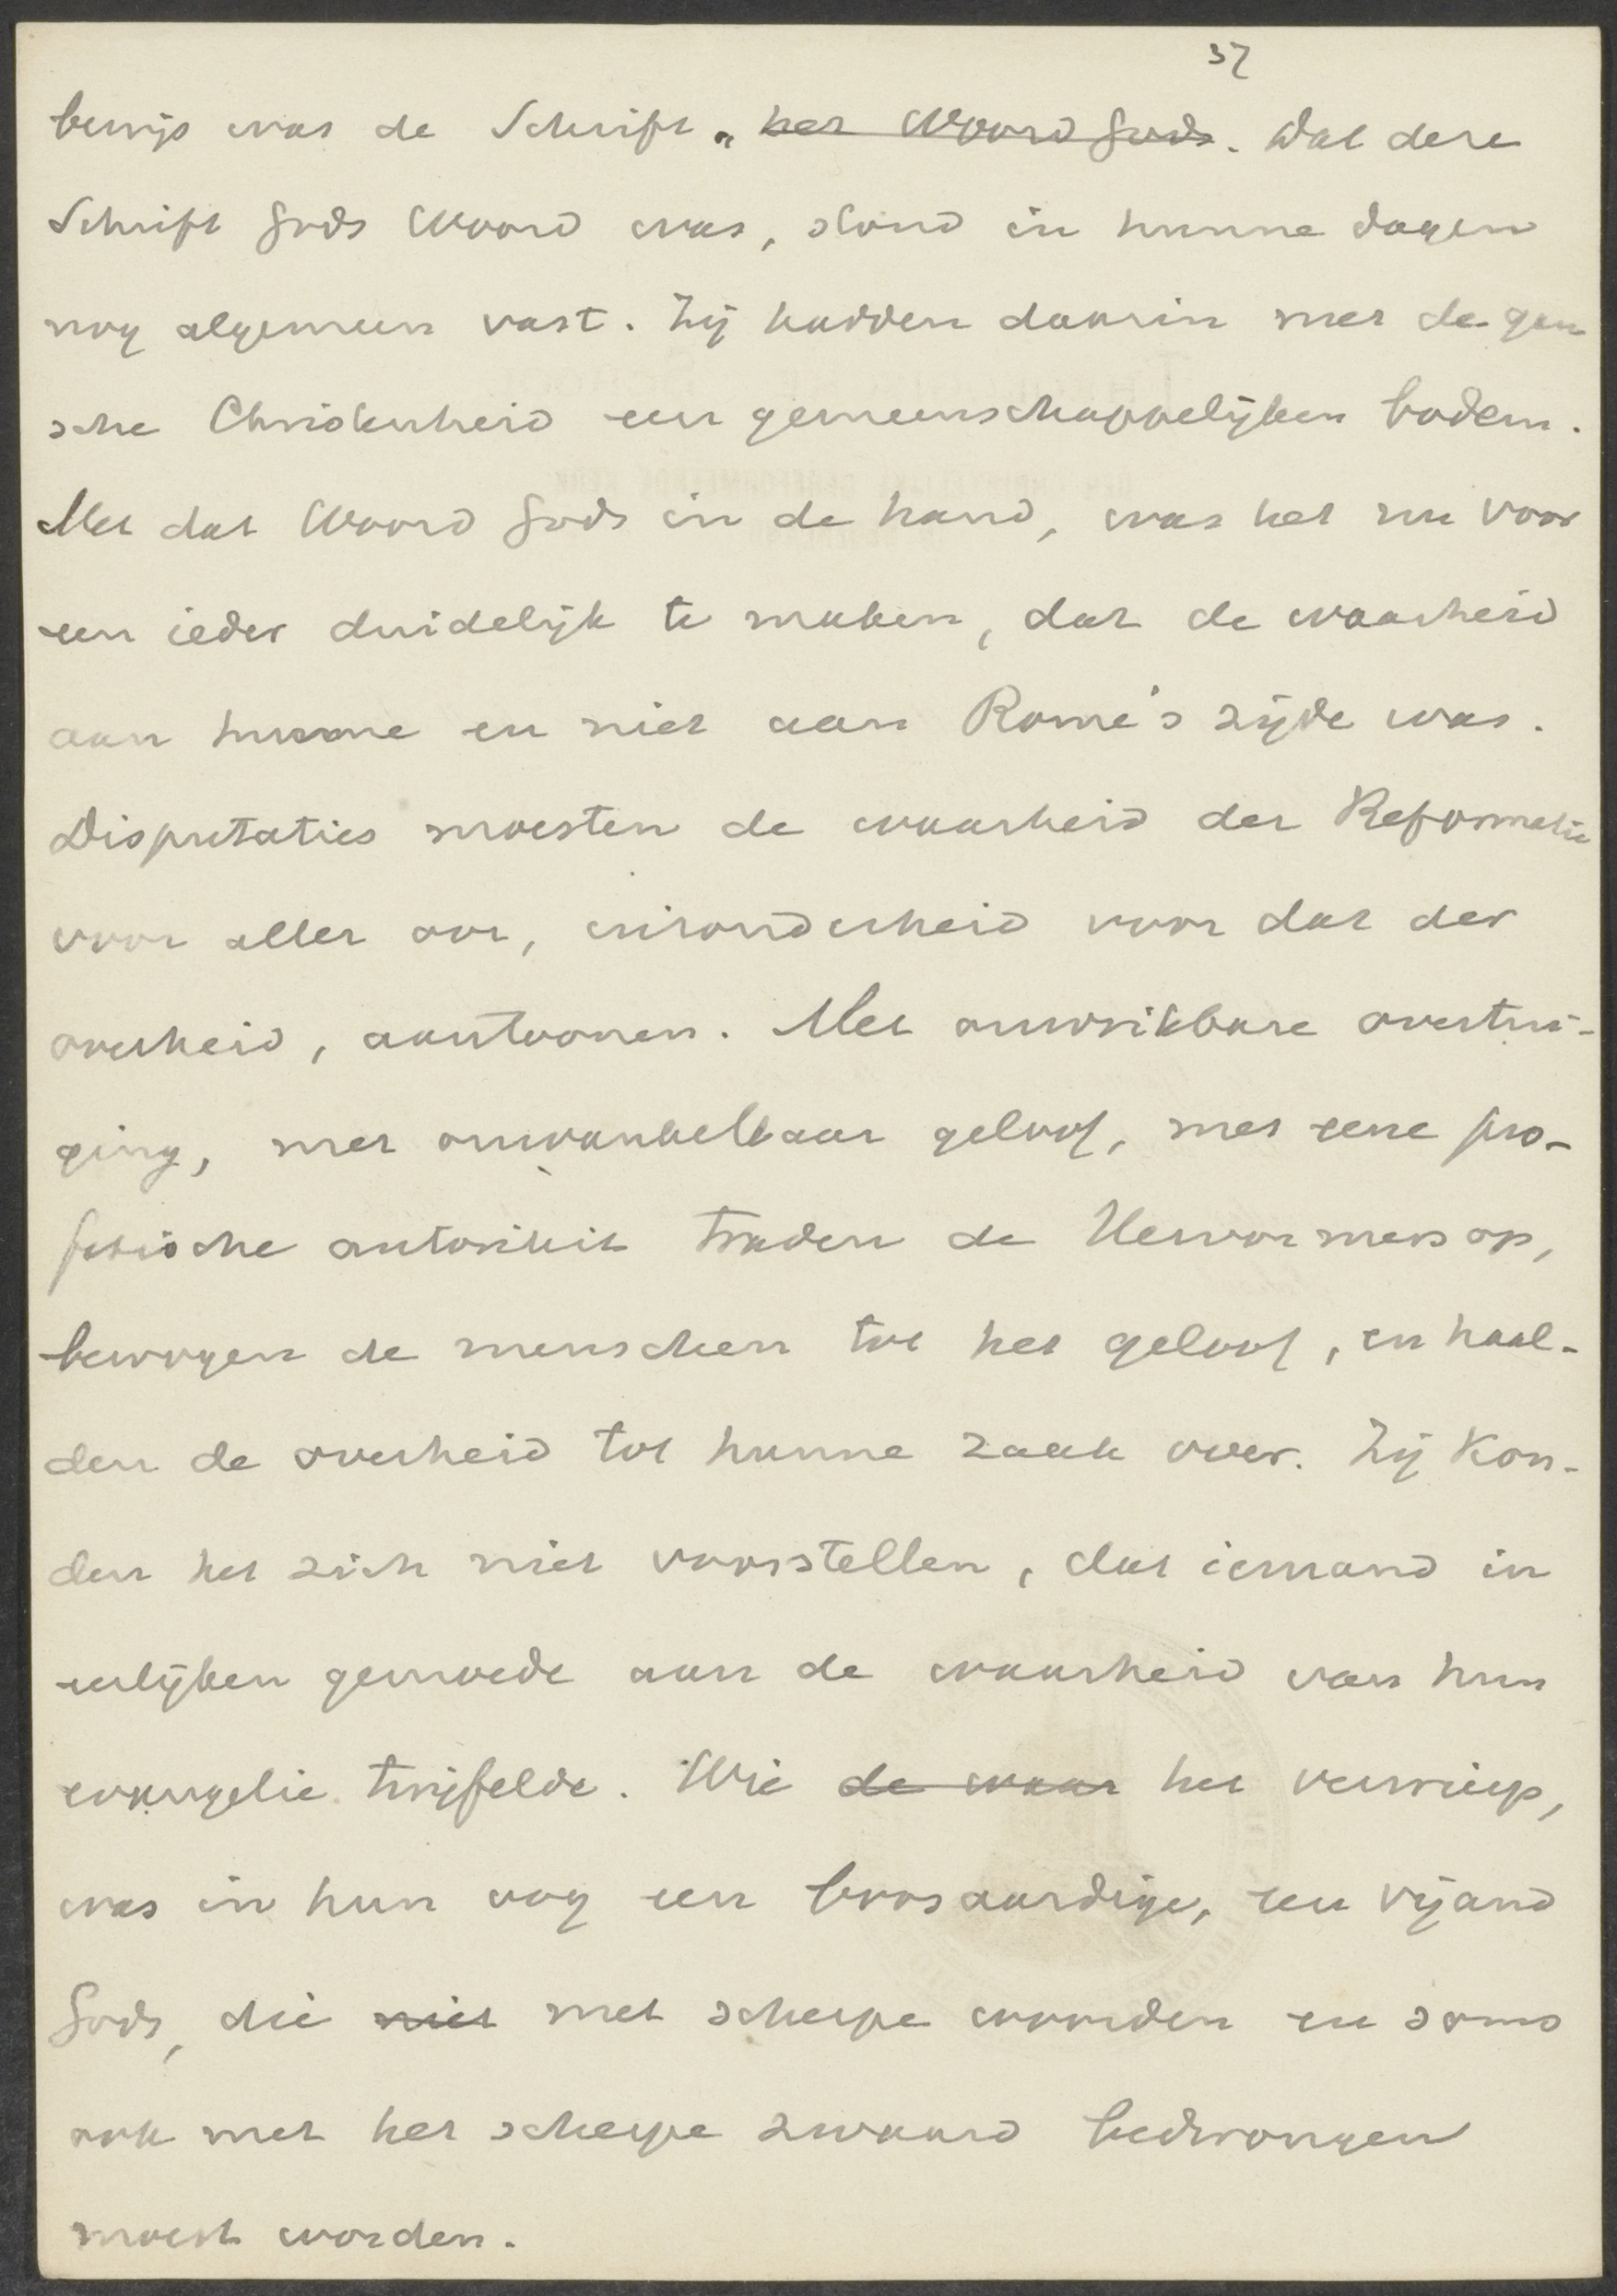 37
bewijs was de Schrift „ het Woord Gods. Dat deze
Schrift Gods Woord was, stond in hunne dagen
nog algemeen vast. Zij hadden daarin met de gan
sche Christenheid een gemeenschappelijken bodem.
Met dat Woord Gods in de hand, was het nu voor
een ieder duidelijk te maken, dat de waarheid
aan hunne en niet aan Rome's zijde was.
Disputaties moesten de waarheid der Reformatie
voor aller oor, inzonderheid voor dat der
overheid, aantoonen. Met onwrikbare overtui-
ging, met onwankelbaar geloof, met eene pro-
fetische autoriteit traden de Hervormers op,
bewogen de menschen tot het geloof, en haal-
den de overheid tot hunne zaak over. Zij kon-
den het zich niet voorstellen, dat iemand in
eerlijken gemoede aan de waarheid van hun
evangelie twijfelde. Wie de waar het verwierp,
was in hun oog een boosaardige, een vijand
Gods, die niet met scherpe woorden en soms
ook met het scherpe zwaard bedwongen
moest worden.